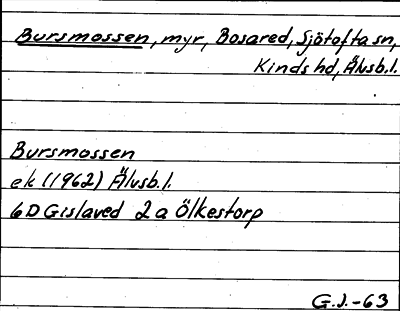 Bursmossen, myr, Bosared, Sjötofta sn,
Kinds hd, Älvsb.l.
Bursmossen
ek (1962) Älvsb.l.
6D Gislaved 2a Ölkestorp
G.J.-63